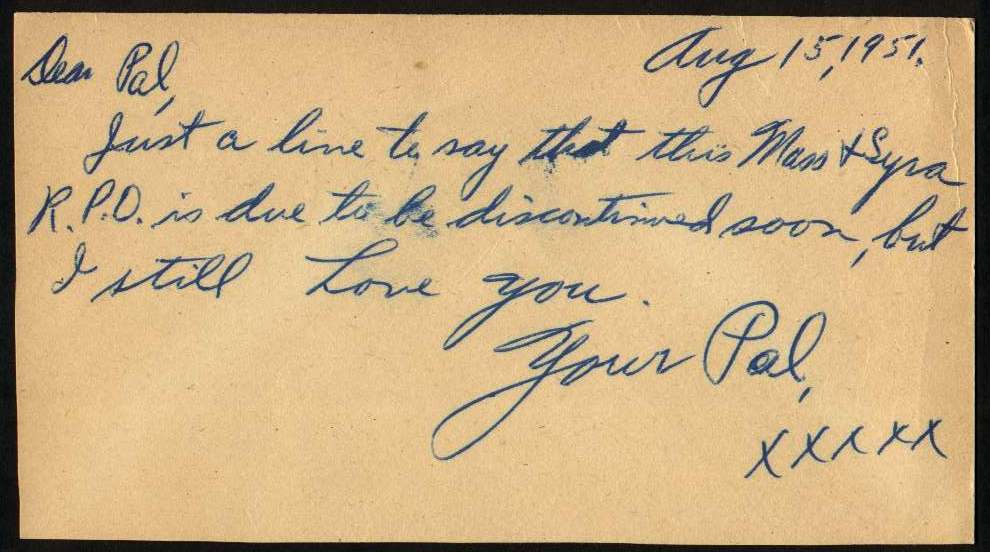 Aug 15, 1951.
Dear Pal,
Just a line to say that this Mass & Syra
R.P.O. is due to be discontinued soon, but
I still Love you.
Your Pal,
xxxxx